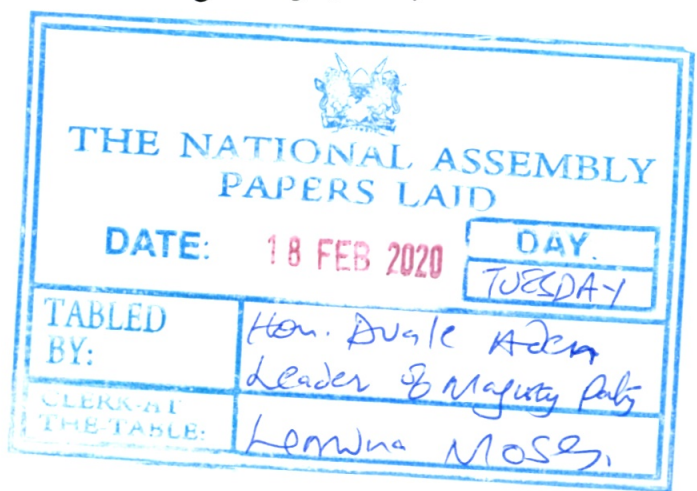 THE NATIONAL ASSEMBLY
PAPERS LAID
DATE: 18 FEB 2020
DAY.
TUESDAY
TABLED
BY:
Hon. Duale Aden
Leader of Majority Party
CLERK-AT
THE-TABLE:
Moses.